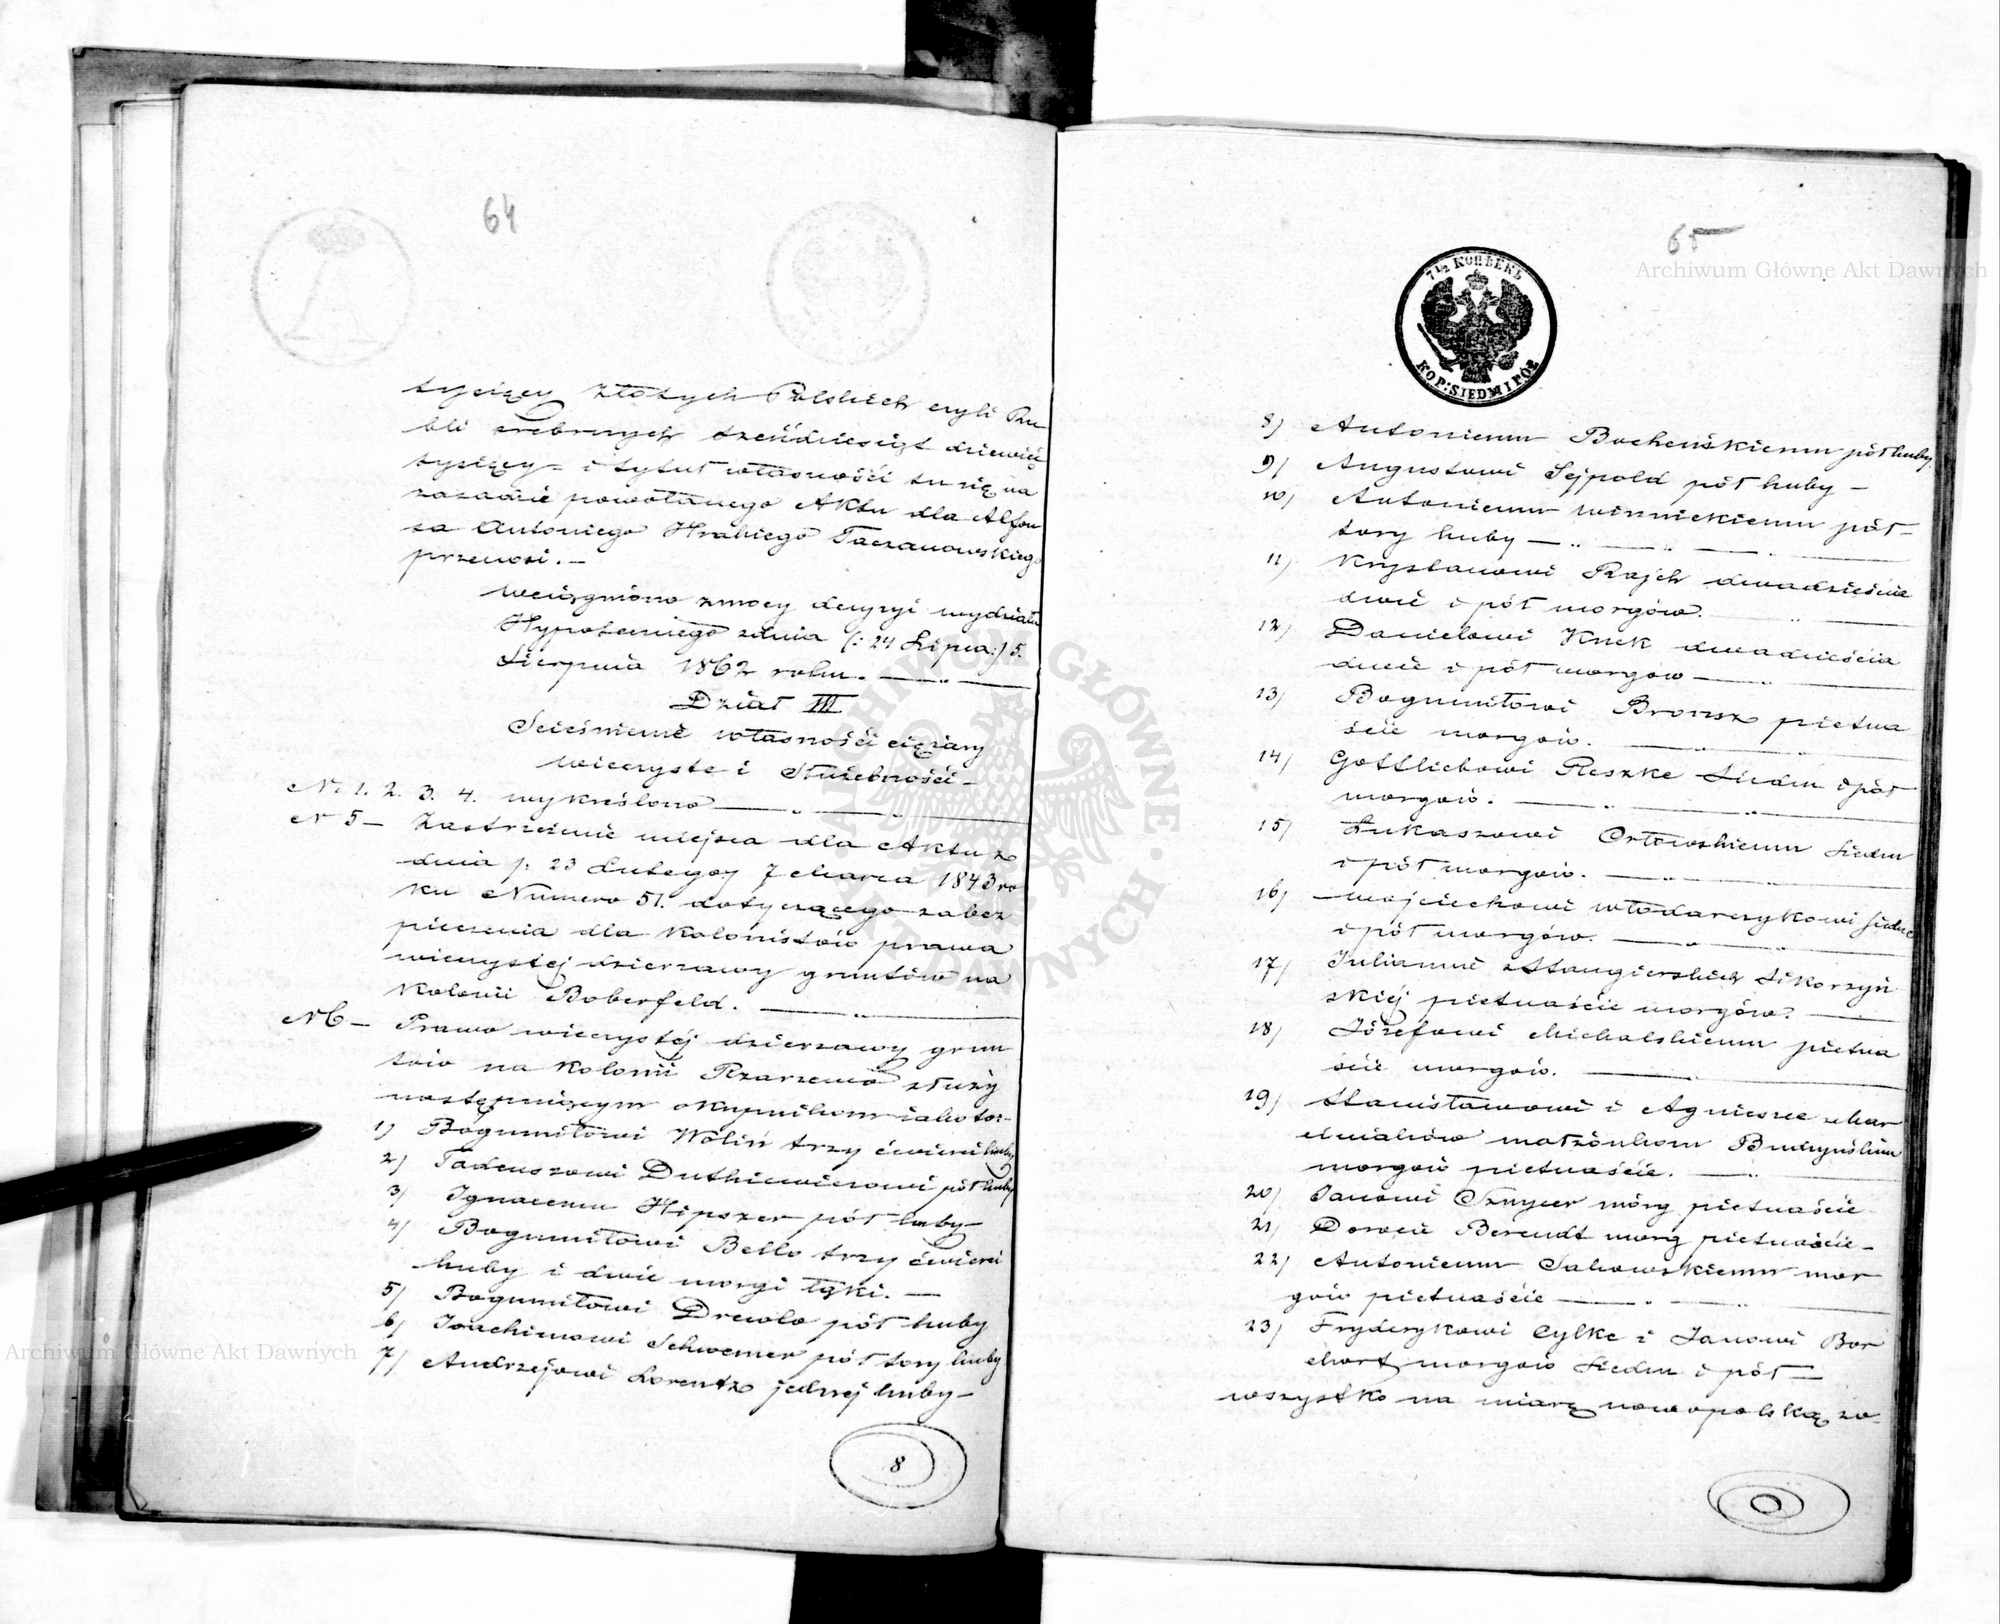 64
tysięcy złotych Polskich czyli Ru
bli srebrnych sześćdziesiąt dziewięć
tysięcy = i tytuł własności tu się na
zasadzie powołanego Aktu dla Alfon
sa Antoniego Hrabiego Taczanowskiego
przenosi. —
Wciągniono zmocy decyzyi wydziału
Hypotecznego zdnia (: 24 Lipca :) 5.
Sierpnia 1862 roku. —
Dział III
Scieśnienie własności ciężary
wieczyste i Służebności —
N. 1. 2. 3. 4. wykreślono —
N 5 — Zastrzeżenie miejsca dla Aktu z
dnia 23 Lutego 7 Marca 1843 ro
ku Numero 51. dotyczącego zabez
pieczenia dla Kolonistów prawa
wieczystej dzierzawy gruntów na
Kolonii Boberfeld. —
N 6 — Prawo wieczystéj dzierzawy grun
tów na Kolonii Rzarzewo służy
następującym okupnikom iako to:
1) Bogumiłowi Wolin trzy ćwierci huby
2) Tadeuszowi Dutkiewiczowi pół huby
3) Ignacemu Hipszer pół huby —
4) Bogumiłowi Bello trzy ćwierci
huby i dwie morgi łąki. —
5) Bogumiłowi Drewlo pół huby
6) Joachimowi Schwemer pół tory huby
7) Andrzejowi Lorentz jednej huby —
8
65
7 1/2 КОПѢЕКЪ
KOP: SIEDM I PÓŁ
8) Antoniemu Bocheńskiemu pół huby
9) Augustowi Sejpold pół huby —
10) Antoniemu Winnickiemu pół
tory huby —
11) Krystanowi Rajch dwadzieścia
dwie i pół morgów.
12) Danielowi Kuck dwadzieścia
dwie i pół morgów —
13) Bogumiłowi Bronsz pietna
ście morgów. —
14) Gottliebowi Reszke Siedm i pół
morgów. —
15) Łukaszowi Orłowskiemu Siedm
i pół morgów. —
16) Wojciechowi Włodarczykowi Siedm
i pół morgów. —
17) Juliannie z Stangierskich Sikorzyń
skiéj pietnaście morgów. —
18) Józefowi Michalskiemu pietna
ście morgów. —
19) Stanisławowi i Agnieszce z Mar
ciniaków małżonkom Budzyńskim
morgów pietnaście. —
20) Janowi Sznycer mórg pietnaście
21) Dorocie Berendt morg pietnaście —
22) Antoniemu Sakowskiemu mor
gów pietnaście —
23) Fryderykowi Cylke i Janowi Bor
chart morgów Siedm i pół —
wszystko na miarę nowopolską zo-
ARCHIWUM GŁÓWNE AKT DAWNYCH
Archiwum Główne Akt Dawnych
Archiwum Główne Akt Dawnych